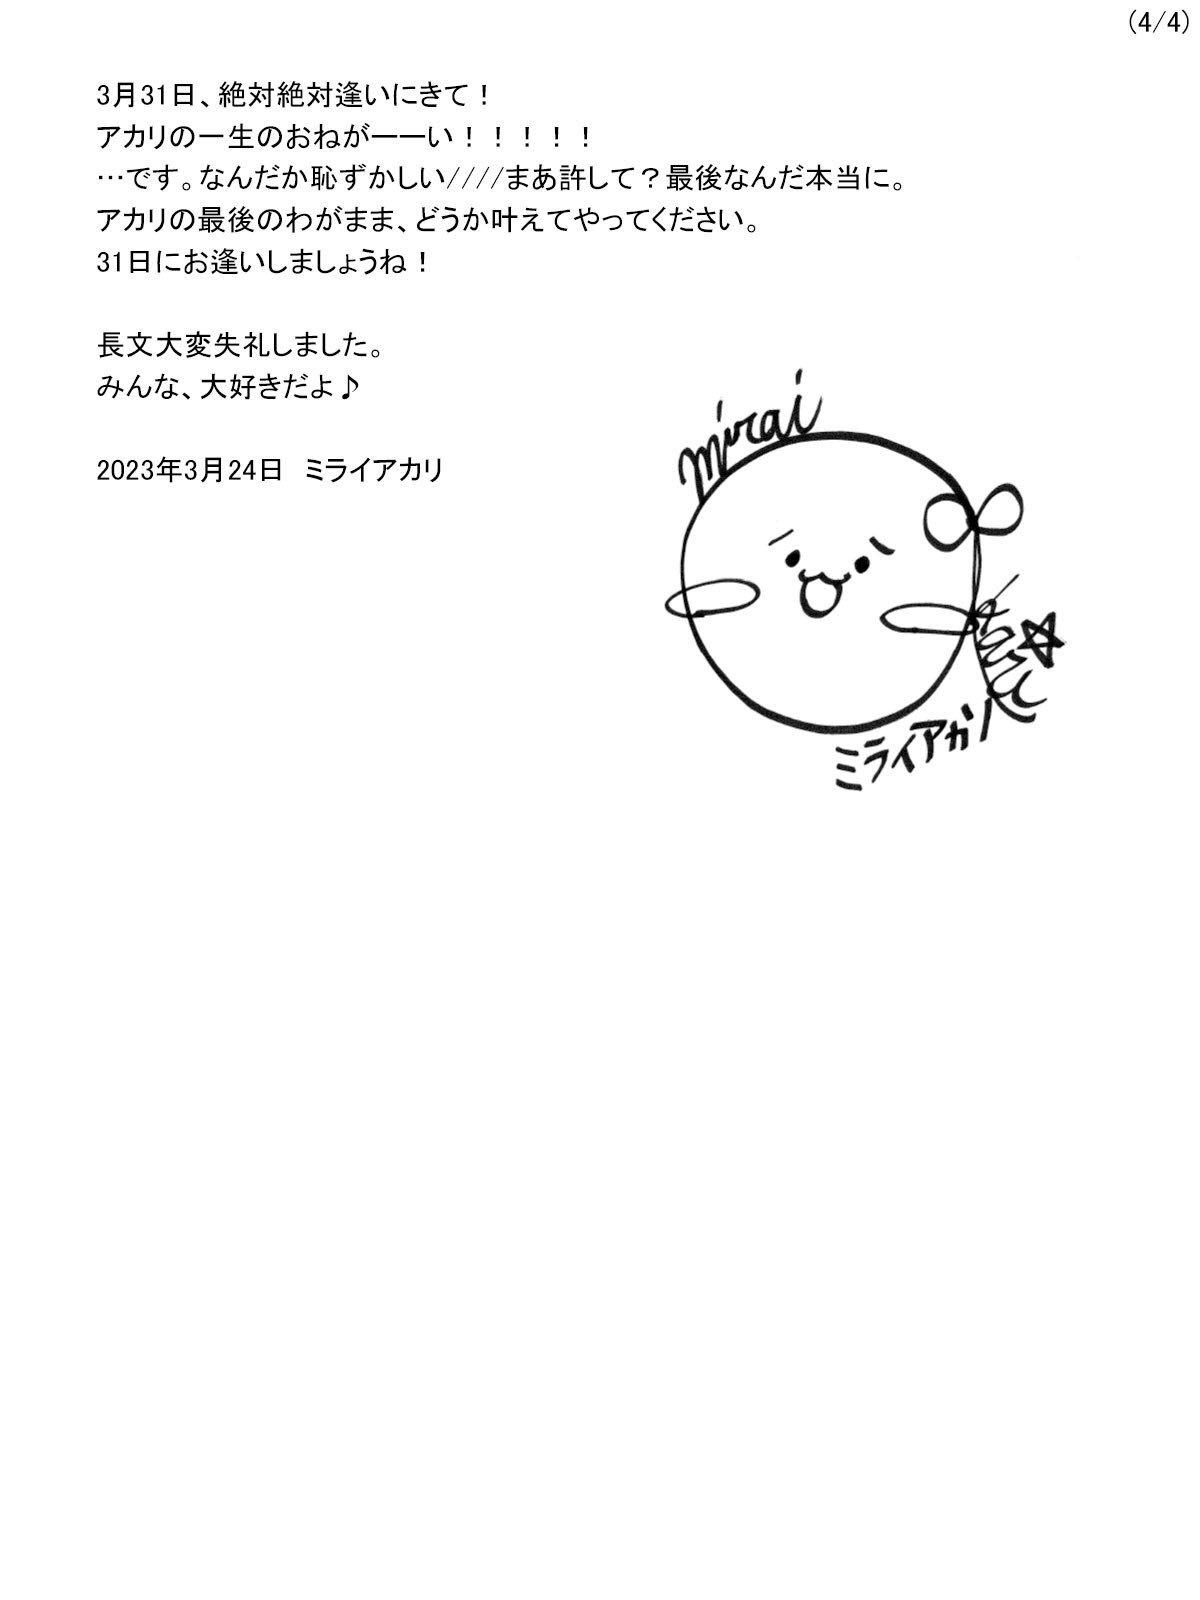 (4/4)
3月31日、絶対絶対逢いにきて！
アカリの一生のおねがーーい！！！！！
…です。なんだか恥ずかしい////まあ許して？最後なんだ本当に。
アカリの最後のわがまま、どうか叶えてやってください。
31日にお逢いしましょうね！
長文大変失礼しました。
みんな、大好きだよ♪
2023年3月24日　ミライアカリ
mirai
Akari☆
ミライアカリ